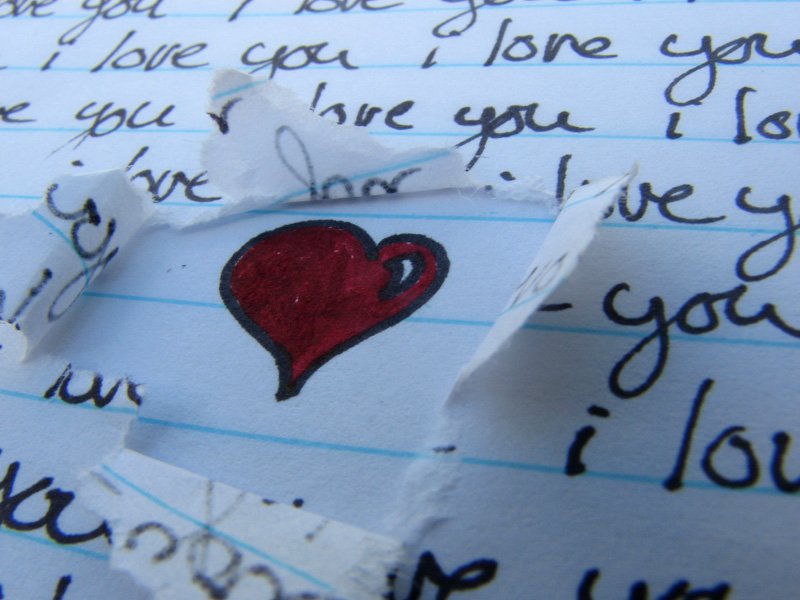 love you i love you
i love you i love you
you i love you i lo
i love i love y
you
lov i lov
you